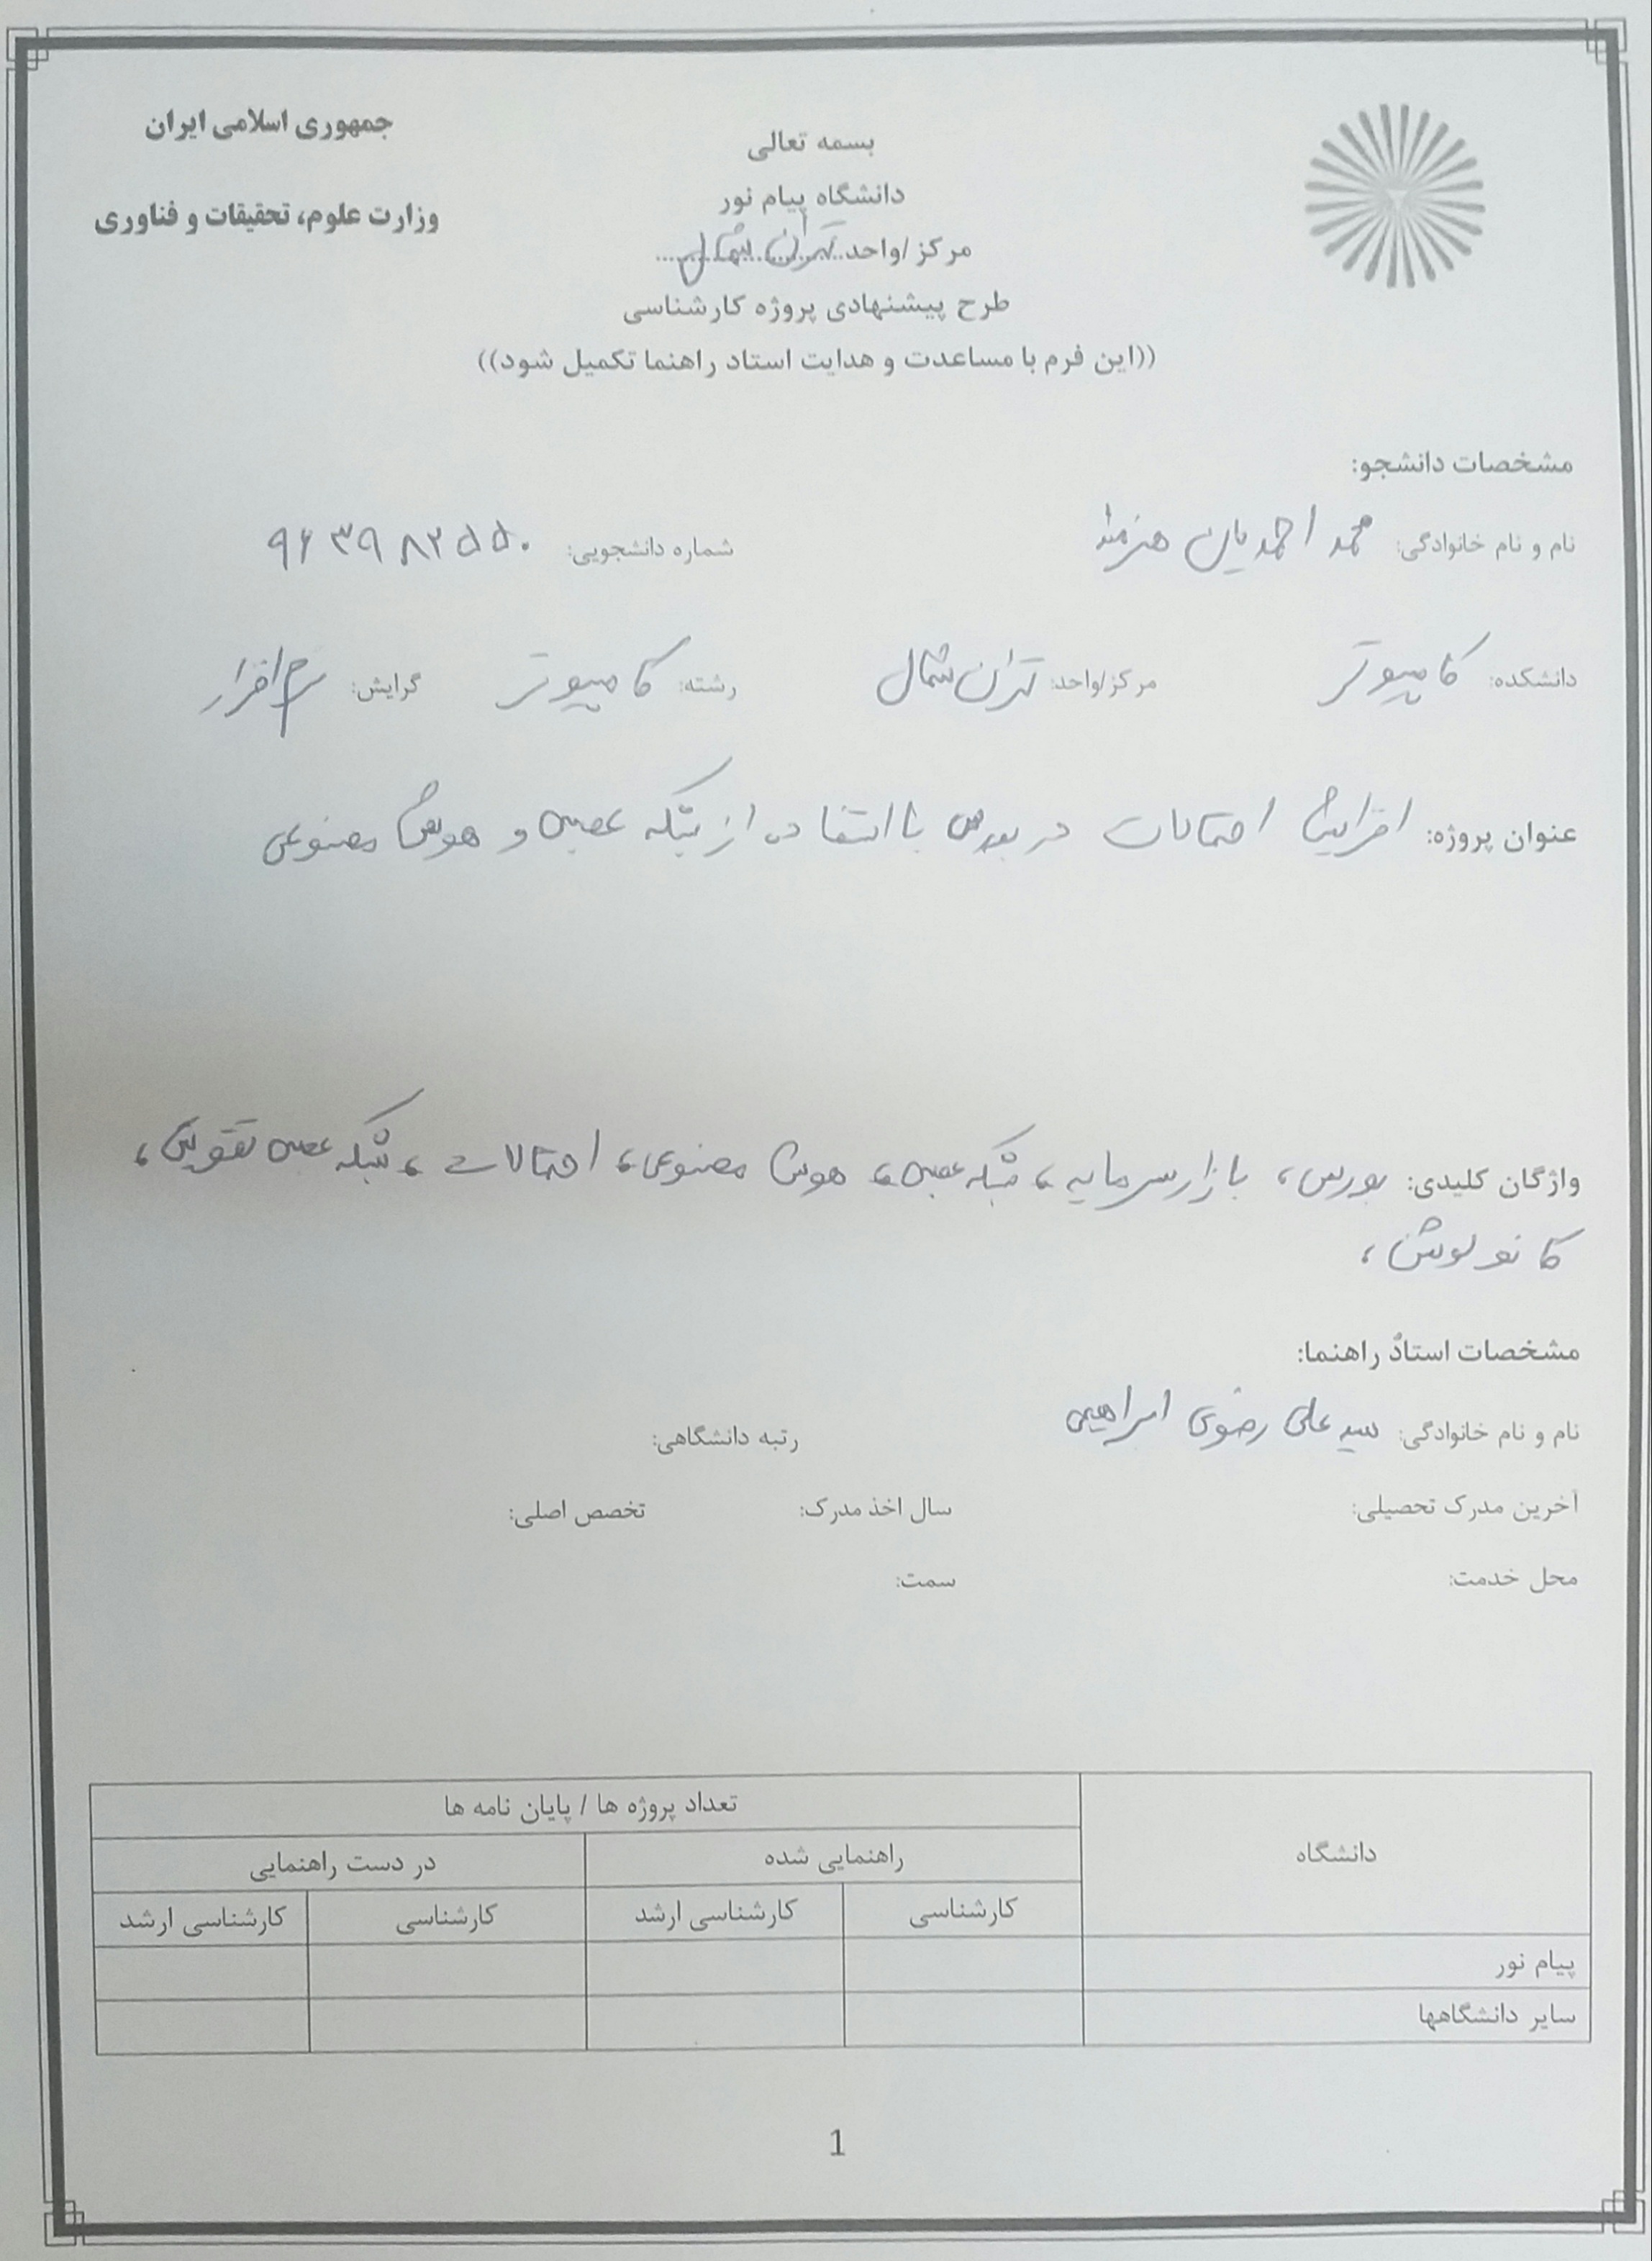 جمهوری اسلامی ایران
وزارت علوم، تحقیقات و فناوری
بسمه تعالی
دانشگاه پیام نور
مرکز/واحد تهران شمال
طرح پیشنهادی پروژه کارشناسی
((این فرم با مساعدت و هدایت استاد راهنما تکمیل شود))
مشخصات دانشجو:
نام و نام خانوادگی: محمد احمدیان هنرمند شماره دانشجویی: ۹۶۳۹۸۲۵۵۰
دانشکده: کامپیوتر مرکز/واحد: تهران شمال رشته: کامپیوتر گرایش: نرم افزار
عنوان پروژه: افزایش احتمالات در بورس با استفاده از شبکه عصبی و هوش مصنوعی
واژگان کلیدی: بورس، بازار سرمایه، شبکه عصبی، هوش مصنوعی، احتمالات، شبکه عصبی تقویتی،
کانولوشن،
مشخصات استاد راهنما:
نام و نام خانوادگی: سید علی رضوی ابراهیمی رتبه دانشگاهی:
آخرین مدرک تحصیلی: سال اخذ مدرک: تخصص اصلی:
محل خدمت: سمت:
دانشگاه تعداد پروژه ها / پایان نامه ها
راهنمایی شده در دست راهنمایی
کارشناسی کارشناسی ارشد کارشناسی کارشناسی ارشد
پیام نور
سایر دانشگاهها
1